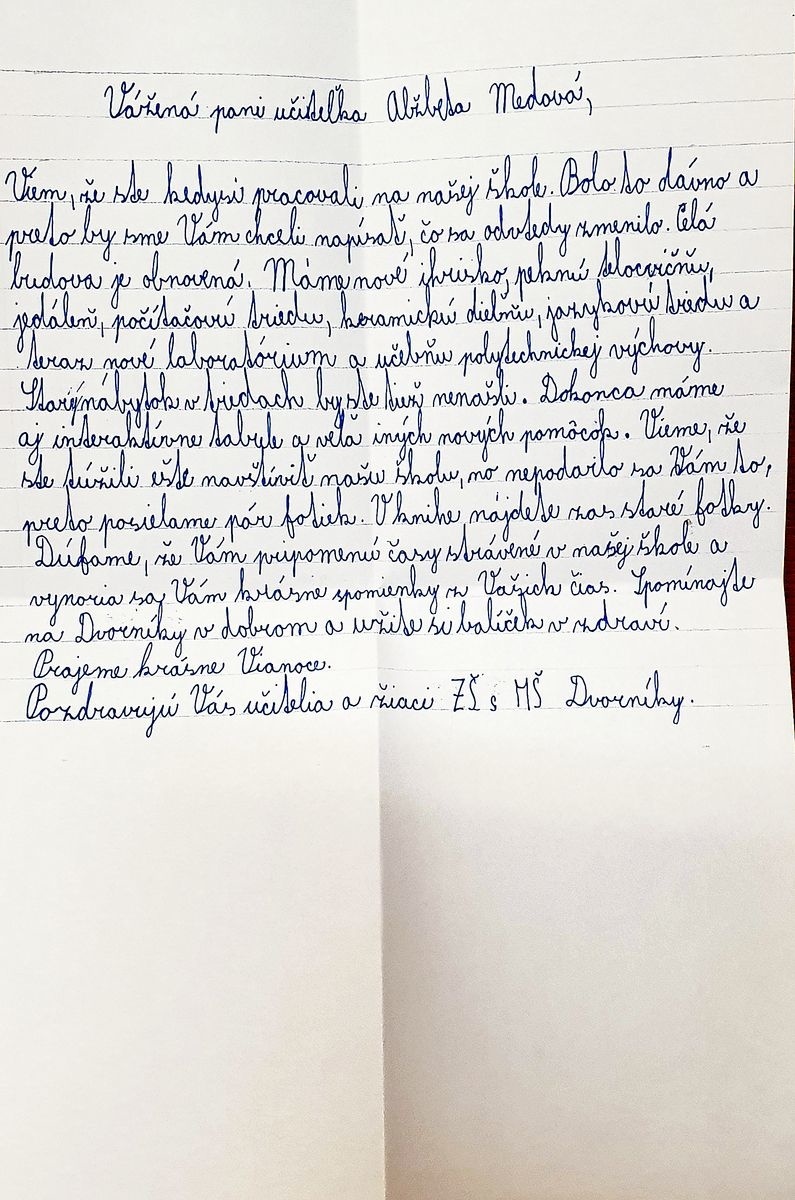 Vážená pani učiteľka Alžbeta Medová,
Viem, že ste kedysi pracovali na našej škole. Bolo to dávno a
preto by sme Vám chceli napísať, čo sa odvtedy zmenilo. Celá
budova je obnovená. Máme nové ihrisko, peknú telocvičňu,
jedáleň, počítačovú triedu, keramickú dielňu, jazykovú triedu a
teraz nové laboratórium a učebňu polytechnickej výchovy.
Starý nábytok v triedach by ste tiež nenašli. Dokonca máme
aj interaktívne tabule a veľa iných nových pomôcok. Vieme, že
ste túžili ešte navštíviť našu školu, no nepodarilo sa Vám to,
preto posielame pár fotiek. V knihe nájdete zas staré fotky.
Dúfame, že Vám pripomenú časy strávené v našej škole a
vynoria sa Vám krásne spomienky z Vašich čias. Spomínajte
na Dvorníky v dobrom a užite si balíček v zdraví.
Prajeme krásne Vianoce.
Pozdravujú Vás učitelia a žiaci ZŠ s MŠ Dvorníky.